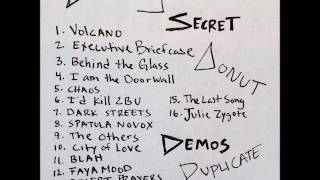 SECRET
DONUT
1. VOLCANO
2. Executive Briefcase
3. Behind the Glass
4. I am the DoorWall
5. CHAOS
6. I'd Kill 2BU
7. DARK STREETS
8. SPATULA NOVOX
9. The Others
10. City of Love
11. BLAH
12. FAYA MOOD
PRAYERS
15. The Last Song
16. Julie Zygote
DEMOS
DUPLICATE